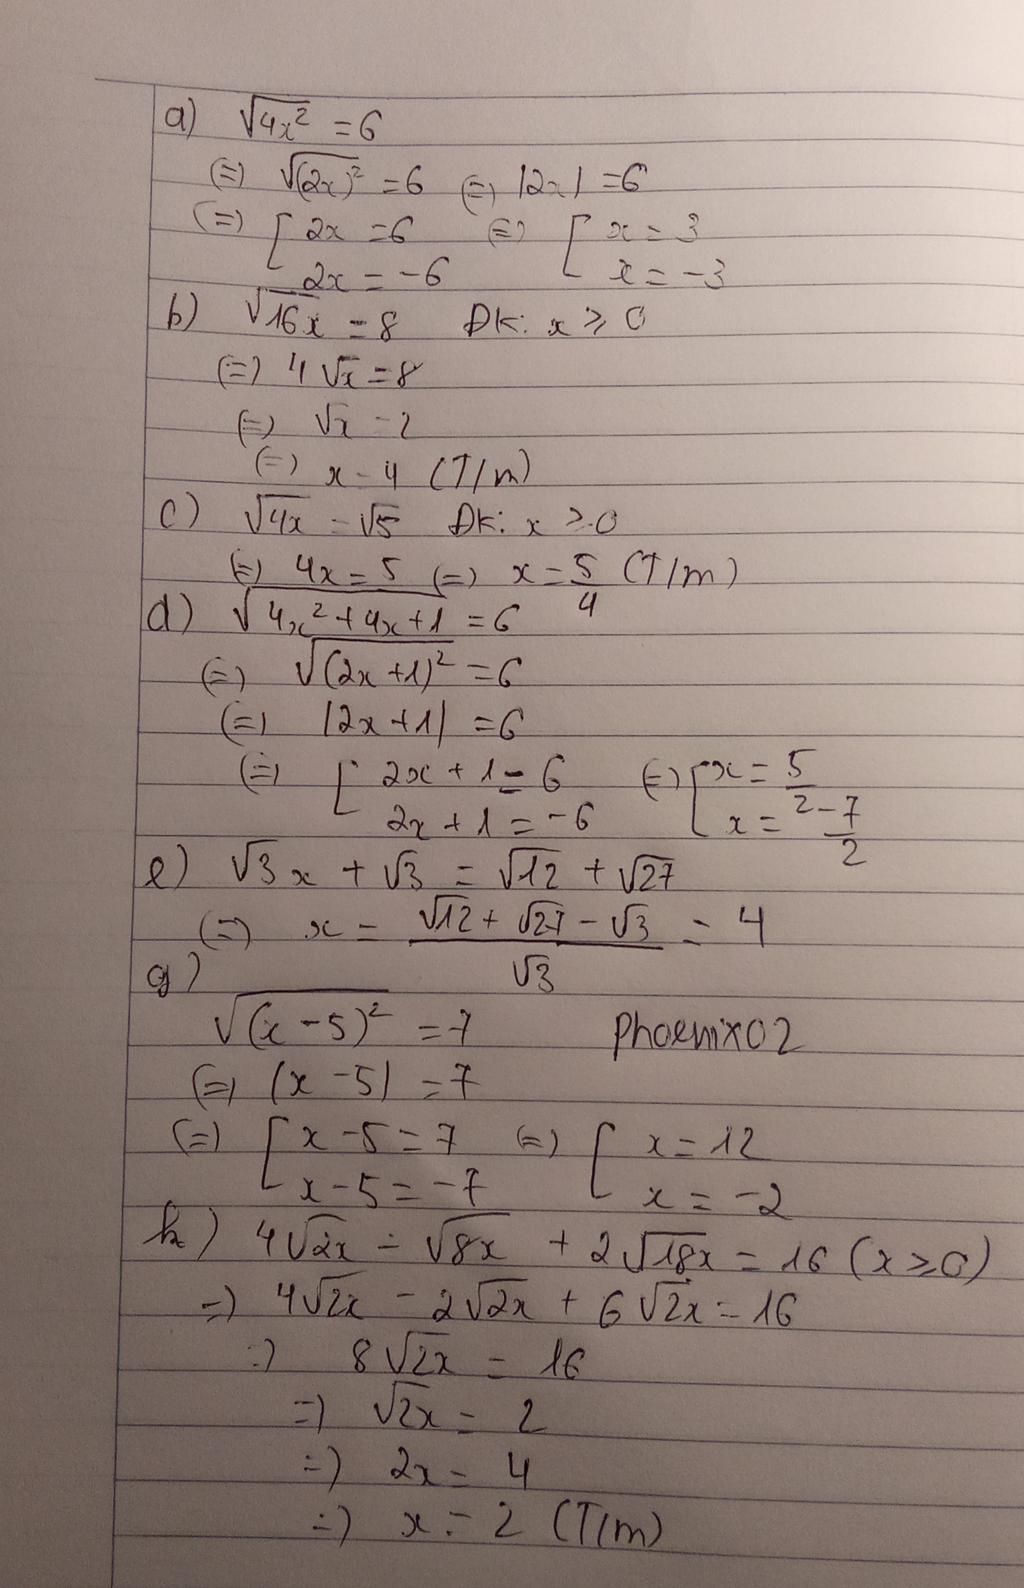 a) √4x² = 6
(=) √(2x)² = 6 (=) |2x| = 6
(=) [ 2x = 6 (=) [ x = 3
2x = -6 x = -3
b) √16x = 8 ĐK: x ⩾ 0
(=) 4√x = 8
(=) √x = 2
(=) x = 4 (T/m)
c) √4x = √5 ĐK: x ⩾ 0
(=) 4x = 5 (=) x = 5/4 (T/m)
d) √4x² + 4x + 1 = 6
(=) √(2x + 1)² = 6
(=) |2x + 1| = 6
(=) [ 2x + 1 = 6 (=) [ x = 5/2
2x + 1 = -6 x = -7/2
e) √3 x + √3 = √12 + √27
(=) x = (√12 + √27 - √3)/√3 = 4
g)
√(x - 5)² = 7 Phoenix02
(=) |x - 5| = 7
(=) [ x - 5 = 7 (=) [ x = 12
x - 5 = -7 x = -2
h) 4√2x - √8x + 2√18x = 16 (x ⩾ 0)
=) 4√2x - 2√2x + 6√2x = 16
=) 8√2x = 16
=) √2x = 2
=) 2x = 4
=) x = 2 (T/m)